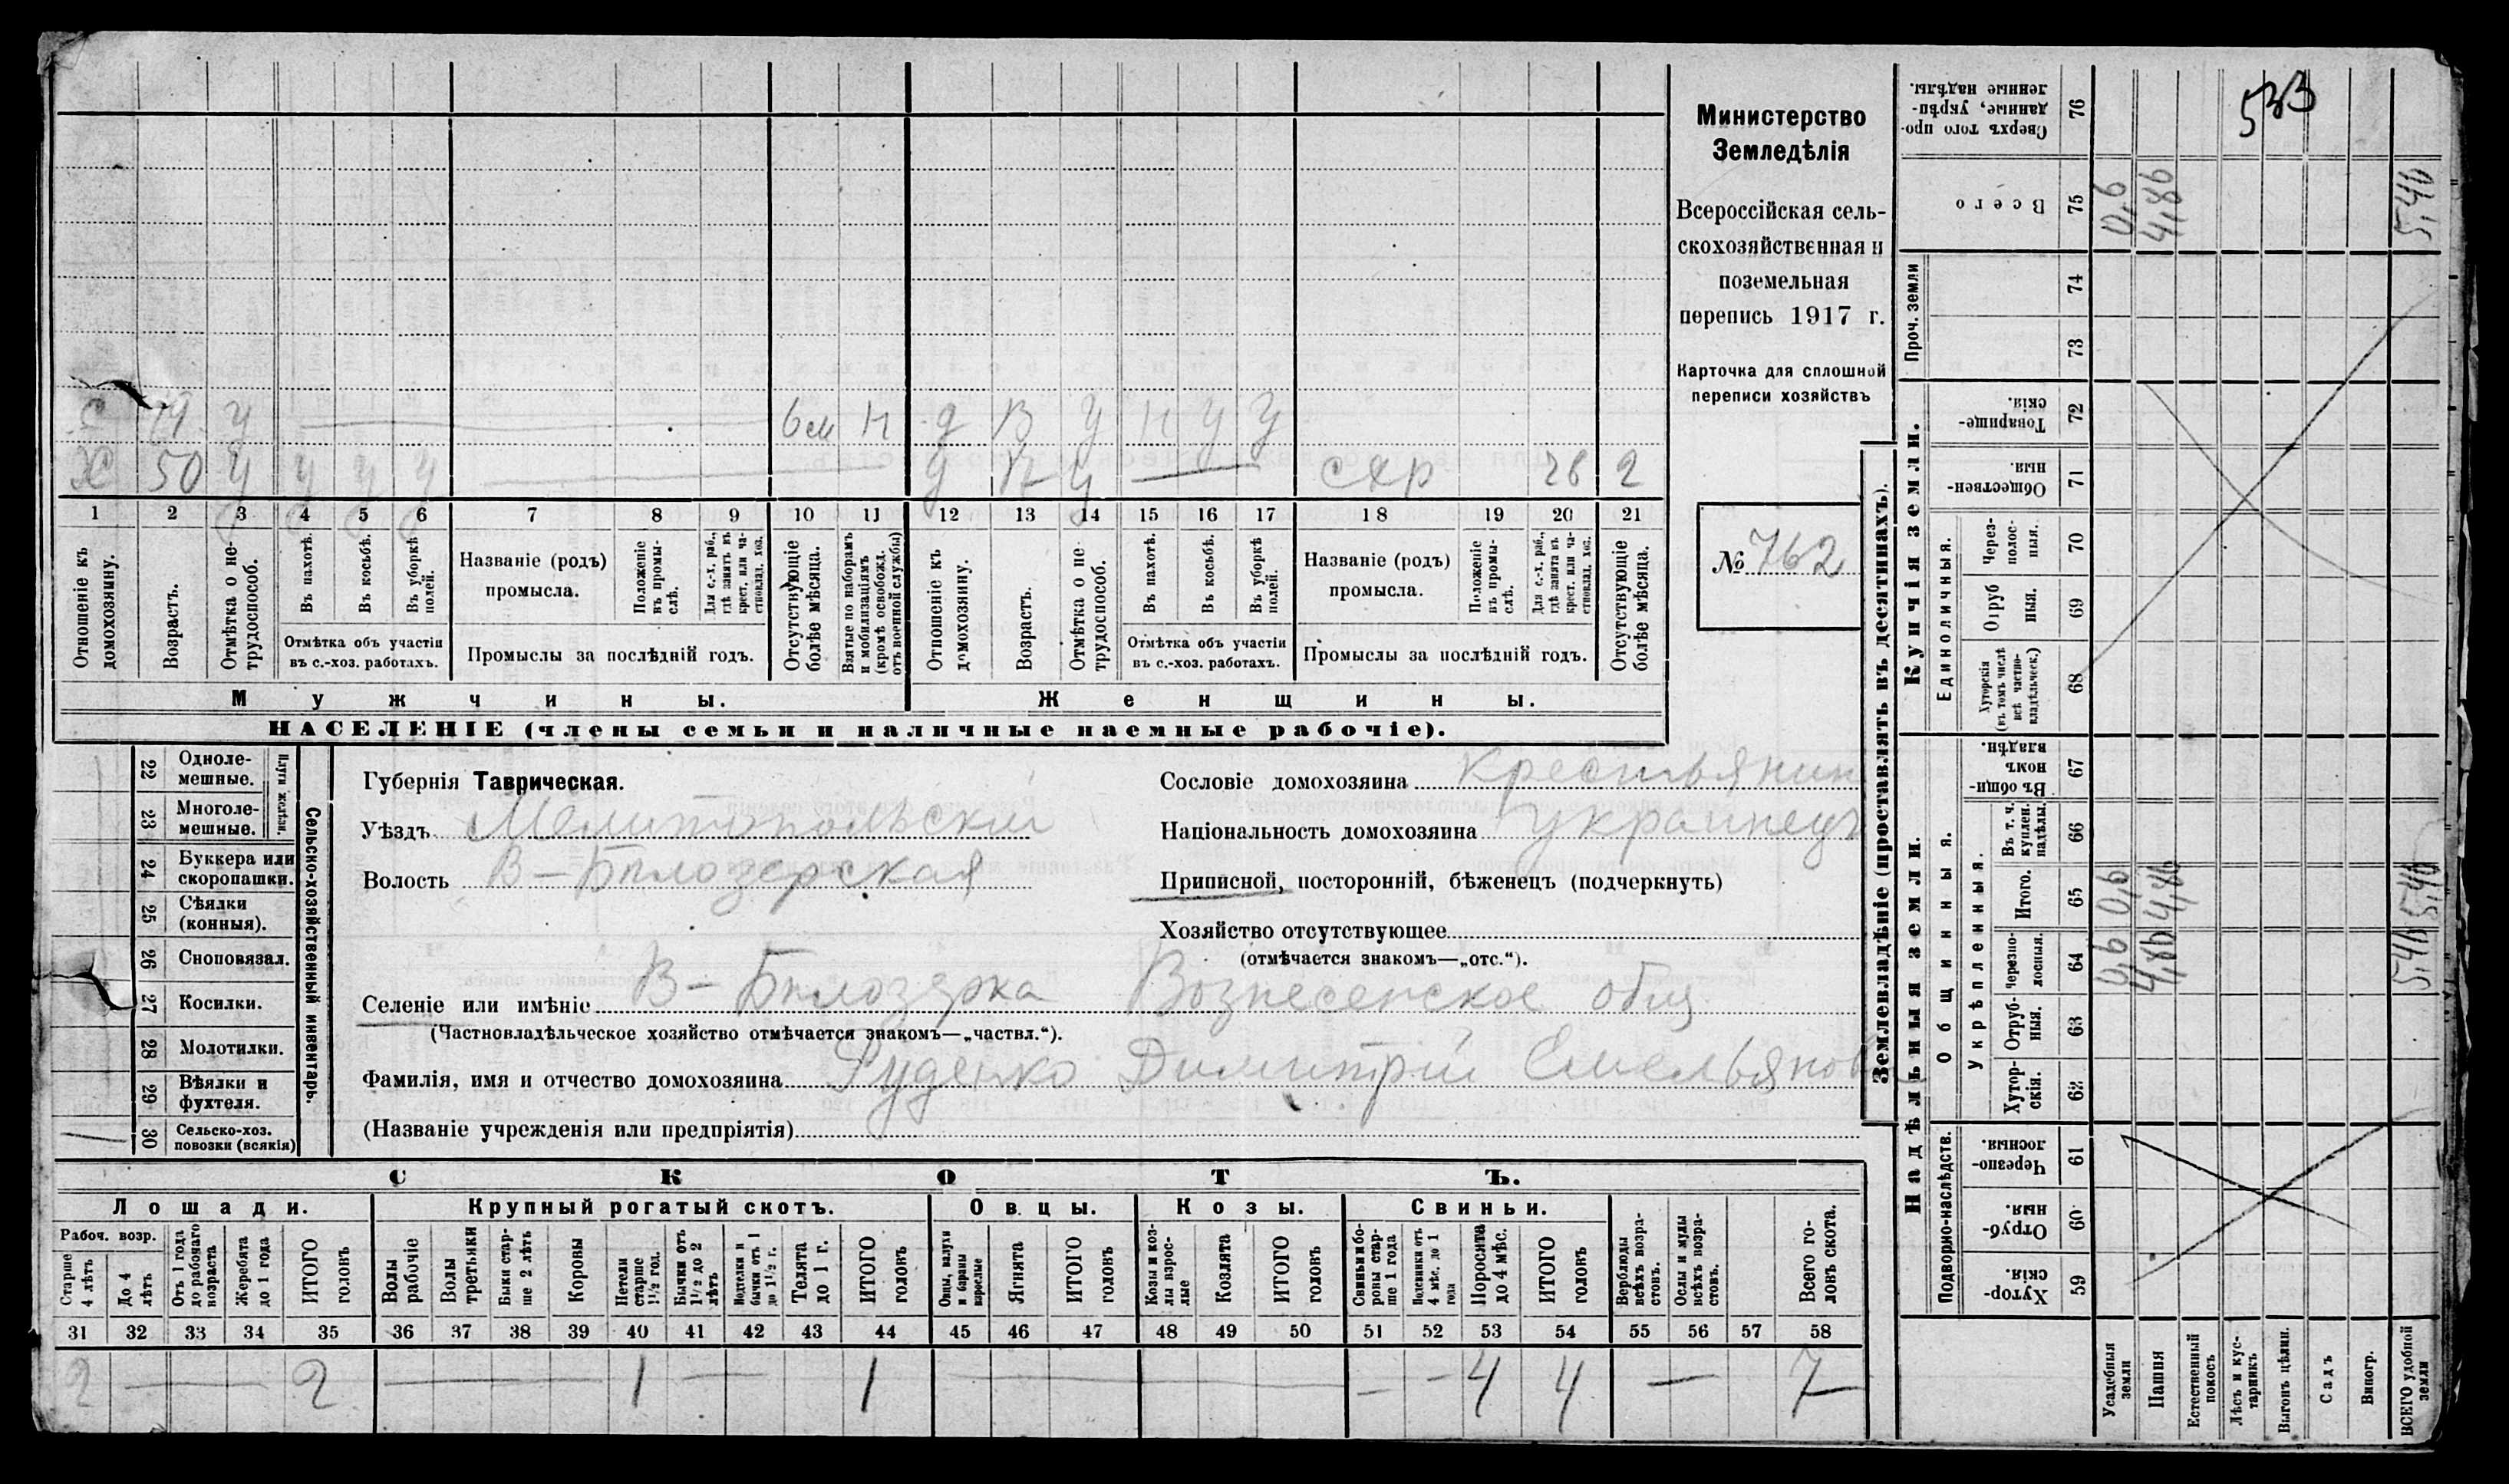 Министерство
Земледѣлія
Всероссійская сель-
скохозяйственная и
поземельная
перепись 1917 г.
Карточка для сплошной
переписи хозяйствъ
№ 762
533
6 м н д В у н у у
Х 50 у у у у
1 2 3 4 5 6 7 8 9 10 11 12 13 14 15 16 17 18 19 20 21
Отношеніе къ домохозяину.
Возрастъ.
Отмѣтка о не-трудоспособ.
Въ пахотѣ.
Въ косьбѣ.
Въ уборкѣ полей.
Отмѣтка объ участіи
въ с.-хоз. работахъ.
Названіе (родъ)
промысла.
Положеніе въ промы-слѣ.
Для с.-х. раб., гдѣ занятъ въ крест. или ча-стновлад. хоз.
Промыслы за послѣдній годъ.
Отсутствующіе болѣе мѣсяца.
Взятые по наборамъ и мобилизаціямъ (кромѣ освобожд. отъ военной службы)
Отношеніе къ домохозяину.
Возрастъ.
Отмѣтка о не-трудоспособ.
Въ пахотѣ.
Въ косьбѣ.
Въ уборкѣ полей.
Отмѣтка объ участіи
въ с.-хоз. работахъ.
Названіе (родъ)
промысла.
Положеніе въ промы-слѣ.
Для с.-х. раб., гдѣ занята въ крест. или ча-стновлад. хоз.
Промыслы за послѣдній годъ.
Отсутствующіе болѣе мѣсяца.
Мужчины.
Женщины.
НАСЕЛЕНІЕ (члены семьи и наличные наемные рабочіе).
22 Одноле-мешные.
23 Многоле-мешные.
Плуги желѣзн.
24 Буккера или скоропашки.
25 Сѣялки (конныя).
26 Сноповязал.
27 Косилки.
28 Молотилки.
29 Вѣялки и фухтеля.
30 Сельско-хоз. повозки (всякія)
Сельско-хозяйственный инвентарь.
Губернія Таврическая.
Уѣздъ Мелитопольскій
Волость В-Бѣлозерская
Сословіе домохозяина крестьянин
Національность домохозяина украинецъ
Приписной, посторонній, бѣженецъ (подчеркнуть)
Хозяйство отсутствующее
(отмѣчается знакомъ—„отс.“).
Селеніе или имѣніе В-Бѣлозерка Вознесенское общ
(Частновладѣльческое хозяйство отмѣчается знакомъ—„частвл.“).
Фамилія, имя и отчество домохозяина Руденко Димитрій Емельянов
(Названіе учрежденія или предпріятія)
СКОТЪ.
Лошади.
Крупный рогатый скотъ.
Овцы.
Козы.
Свиньи.
Рабоч. возр.
Старше 4 лѣтъ
До 4 лѣтъ
Отъ 1 года до рабочаго возраста
Жеребята до 1 года
ИТОГО головъ
Волы рабочіе
Волы третьяки
Быки стар-ше 2 лѣтъ
Коровы
Нетели старше 1½ год.
Бычки отъ 1½ до 2 лѣтъ
Телята до 1 г.
ИТОГО головъ
Овцы, валухи и бараны взрослые
Ягнята
ИТОГО головъ
Козы и коз-лы взрос-лые
Козлята
ИТОГО головъ
Свиньи и бо-ровы стар-ше 1 года
Подсвинки отъ 4 мѣс. до 1 года
Поросята до 4 мѣс.
ИТОГО головъ
Верблюды всѣхъ возра-стовъ.
Ослы и мулы всѣхъ возра-стовъ.
Всего го-ловъ скота.
31 32 33 34 35 36 37 38 39 40 41 42 43 44 45 46 47 48 49 50 51 52 53 54 55 56 57 58
2 — 2 — 1 — 1 — — — 4 4 — 7
Землевладѣніе (проставлять въ десятинахъ).
Купчія земли.
Надѣльныя земли.
Сверхъ того про-данные, укрѣп-ленные надѣлы. 76
Всего 75 0,6 4,86 5,46
Проч. земли 74
73
Товарище-скія. 72
Обществен-ныя. 71
Единоличныя.
Через-полос-ныя. 70
Отруб ныя. 69
Хуторскія (въ томъ числѣ всѣ частно-владѣльческ.) 68
Общинныя.
Въ общи-номъ владѣн. 67
Укрѣпленныя.
Въ т. ч. куплен. надѣлы. 66
Итого. 65 0,6 4,86 5,46
Черезпо-лосныя. 64 0,6 4,86 5,46
Отруб-ныя. 63
Хутор-скія. 62
Подворно-наслѣдств.
Черезпо-лосныя 61
Отруб-ныя. 60
Хутор-скія. 59
Усадебныя земли
Пашня
Естественный покосъ
Лѣсъ и кус-тарникъ
Выгонъ цѣлин.
Садъ
Виногр.
ВСЕГО удобной земли